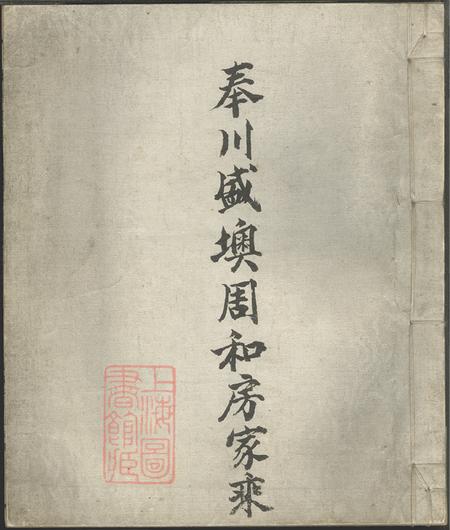 奉川盛墺周和房家乘
上海圖
書館藏